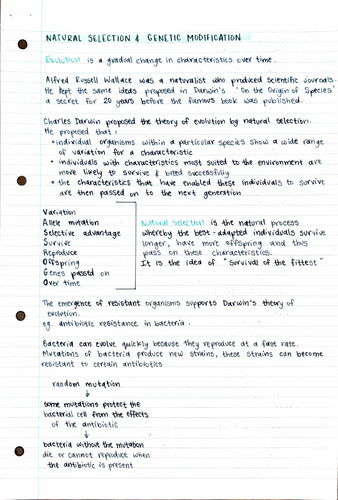 NATURAL SELECTION & GENETIC MODIFICATION
Evolution is a gradual change in characteristics over time.
Alfred Russell Wallace was a naturalist who produced scientific journals.
He kept the same ideas proposed in Darwin's 'On the Origin of Species'
a secret for 20 years before the famous book was published.
Charles Darwin proposed the theory of evolution by natural selection.
He proposed that :
• individual organisms within a particular species show a wide range
of variation for a characteristic
• individuals with characteristics most suited to the environment are
more likely to survive & breed successfully
• the characteristics that have enabled these individuals to survive
are then passed on to the next generation
Variation
Allele mutation
Selective advantage
Survive
Reproduce
Offspring
Genes passed on
Over time
Natural selection is the natural process
whereby the best-adapted individuals survive
longer, have more offspring and this
pass on these characteristics.
It is the idea of "survival of the fittest"
The emergence of resistant organisms supports Darwin's theory of
evolution.
eg. antibiotic resistance in bacteria.
Bacteria can evolve quickly because they reproduce at a fast rate.
Mutations of bacteria produce new strains, these strains can become
resistant to certain antibiotics
random mutation
↓
some mutations protect the
bacterial cell from the effects
of the antibiotic
↓
bacteria without the mutation
die or cannot reproduce when
the antibiotic is present